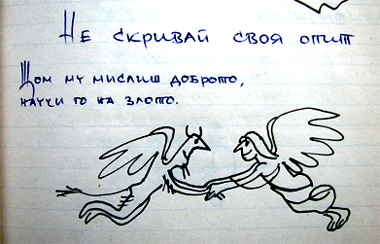 Не скривай своя опит
Щом му мислиш доброто,
научи го на злото.